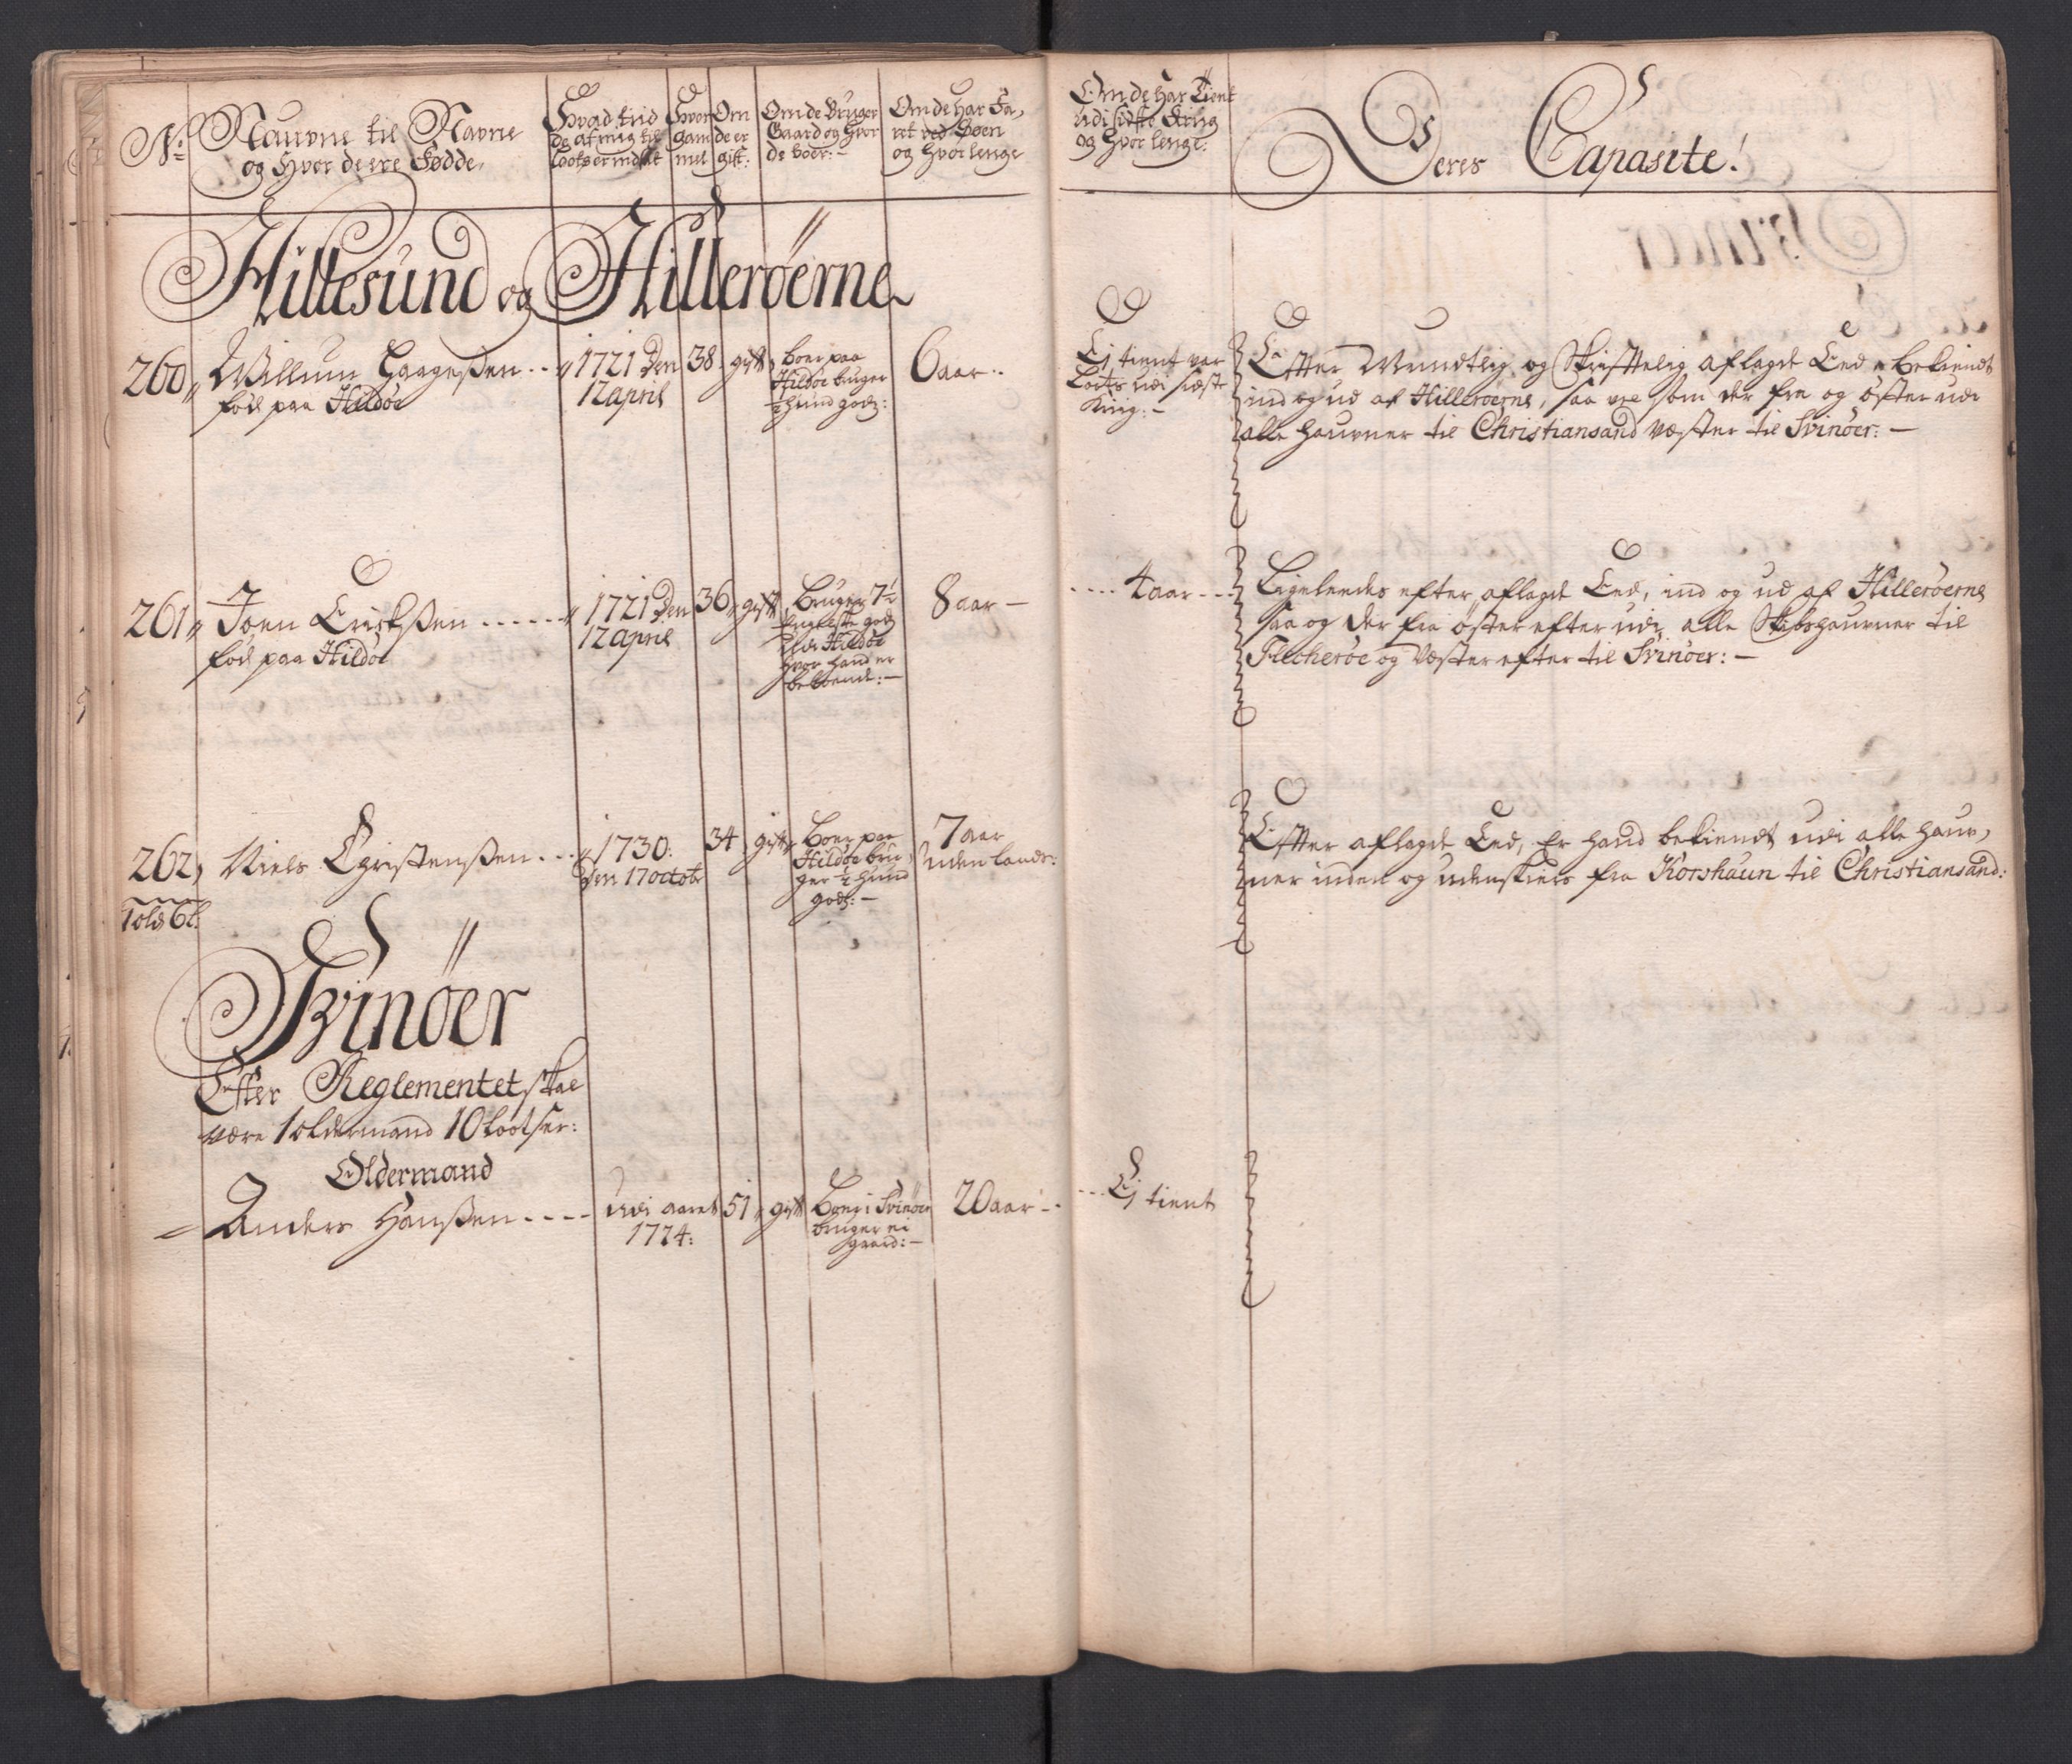 No
Nauvne til Navne
og Hvor de ere Fødde
Hvad tiid
de af mig til
Lootser indsat
Hvor
gam
mel
Om
de er
gift:
Om de Bruger
Gaard og Hvor
de boer:-
Om de har Fa,
ret ved Søen
og Hvor lenge
Om de har Tient
udi sidste Krig
og Hvor lenge:
Deres Capasite!
Hillesund og Hillerøerne
260, Willum Haagensen
fød paa Hildøe
1721 Den
12 april
38
gift,
boer paa
Hildøe bruger
½ hund godz:
6 aar..
Ej tient var
Loots udi sidste
Kriig:-
Efter Mundtlig og Skrifttelig aflagde Eed, bekiendt
ind og ud af Hillerøerne, saa vel som der fra og øster udi
alle Hauvner til Christiansand Vester til Svinøer:-
261, Joen Erichsen
fød paa Hildøe
1721 Den
12 april
36,
gift
Bruger 7½
godz
udi Hildøe
hvor hand er
boende:-
8 aar -
4 aar
Ligeleedes efter aflagde Eed, ind og ud af Hillerøerne
saa og der fra øster efter udi alle Skibshauvner til
Flecherøe og Vester efter til Svinøer:-
262, Niels Christensen
1730:
Den 17 octobr
34
gift,
Boer paa
Hildøe bru,
ger ½ hund
godz:-
7 aar
uden lands:
Efter aflagde Eed, Er hand bekiendt udi alle Hauv,
ner inden og udenskiers fra Korshaun til Christiansand:
1 old 6 l:
Svinøer
Efter Reglementet skal
være 1 oldermand 10 Lootser:
Oldermand
Anders Hansen
udi aaret
1724:
51,
gift
Boer i Svinøer
bruger ei
gaard:-
20 aar -
Ej tient